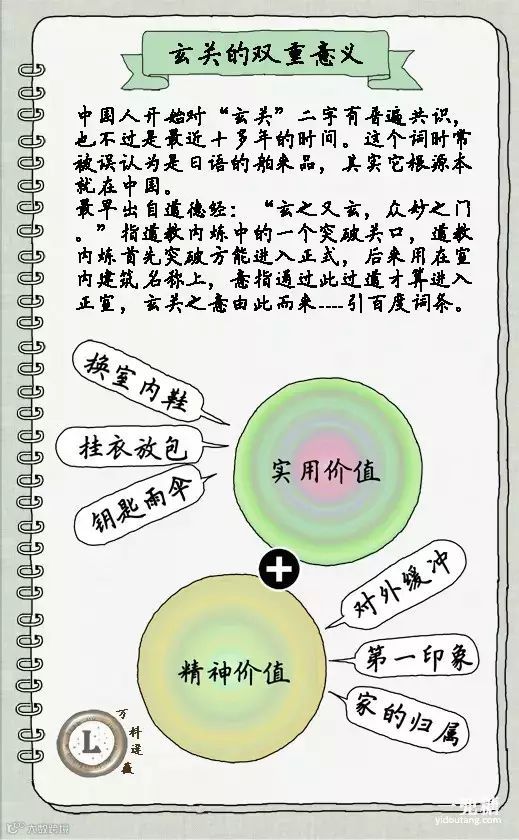 玄关的双重意义
中国人开始对“玄关”二字有普遍共识，
也不过是最近十多年的时间。这个词时常
被误认为是日语的舶来品，其实它根源本
就在中国。
最早出自道德经：“玄之又玄，众妙之门
。”指道教内炼中的一个突破关口，道教
内炼首先突破方能进入正式，后来用在室
内建筑名称上，意指通过此过道才算进入
正室，玄关之意由此而来----引百度词条。
换室内鞋
挂衣放包
钥匙雨伞
实用价值
+
对外缓冲
精神价值
第一印象
家的归属
L
大数跨境
yidoutang.com